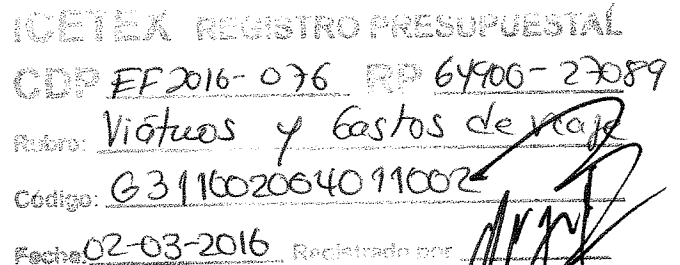 ICETEX REGISTRO PRESUPUESTAL
CDP EF2016-076 RP 64900-27089
Rubro: Viáticos y Gastos de viaje
Código: G311002004011002
Fecha: 02-03-2016 Registrado por